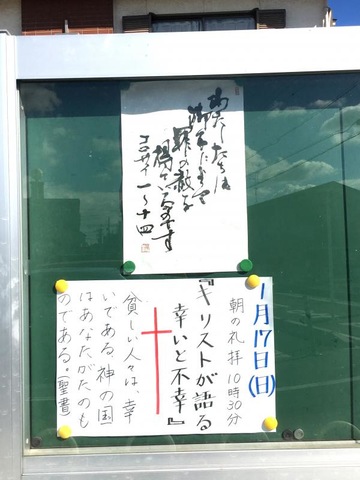 わたしたちは
御子によって
罪の赦しを
得ているのです
コロサイ一〜十四
1月17日(日)
朝の礼拝10時30分
『キリストが語る
幸いと不幸』
貧しい人々は、幸
いである、神の国
はあなたがたのも
のである。(聖書)